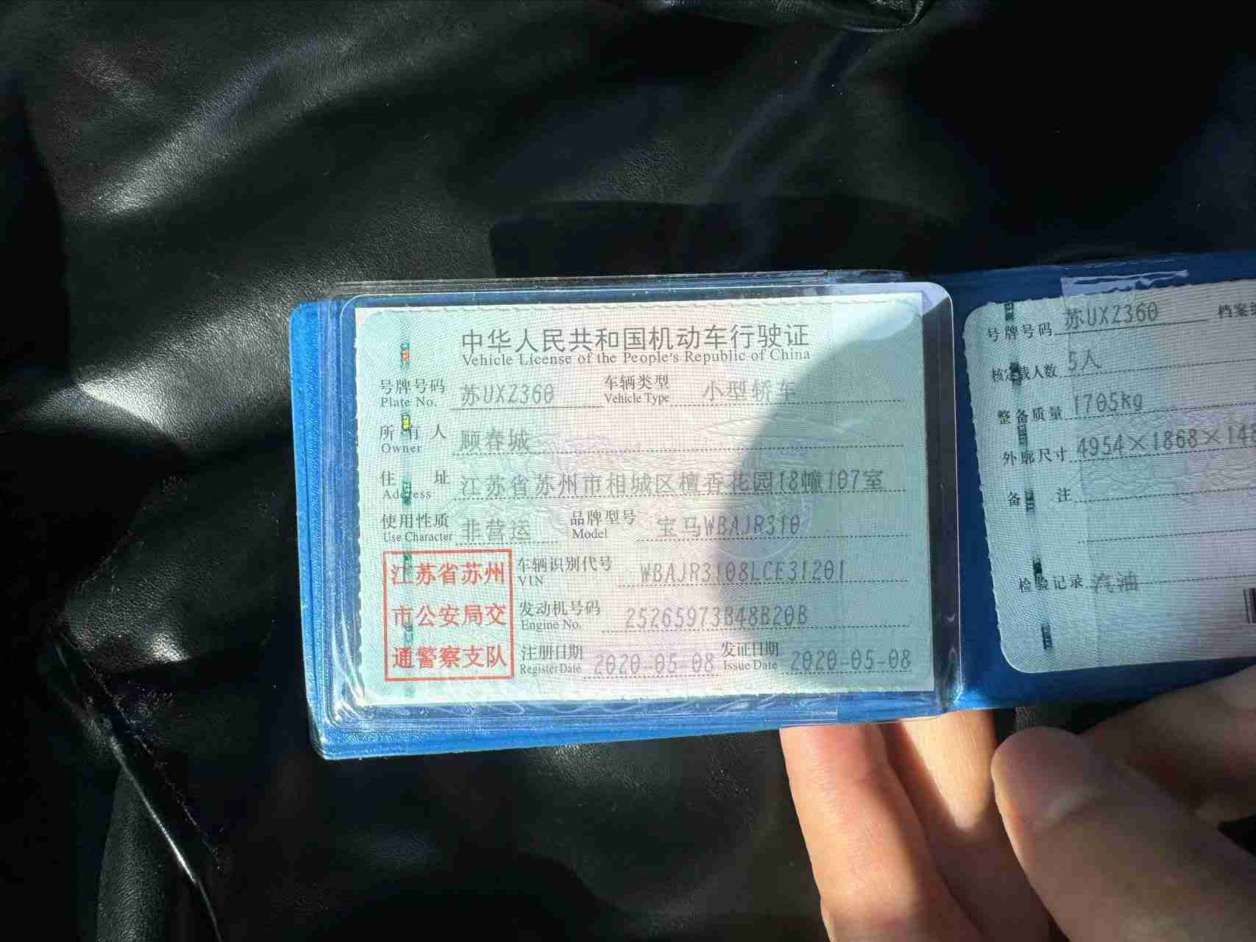 中华人民共和国机动车行驶证
Vehicle License of the People's Republic of China
号牌号码 苏UXZ360 车辆类型 小型轿车
Plate No. Vehicle Type
所有人 顾春城
Owner
住址 江苏省苏州市相城区檀香花园18幢107室
Address
使用性质 非营运 品牌型号 宝马WBAJR310
Use Character Model
江苏省苏州 车辆识别代号 WBAJR3108LCE31201
VIN
市公安局交 发动机号码 25265973B48B20B
Engine No.
通警察支队 注册日期 2020-05-08 发证日期 2020-05-08
Register Date Issue Date
号牌号码 苏UXZ360 档案
核定载人数 5人
整备质量 1705kg
外廓尺寸 4954×1868×14
备注
检验记录 汽油